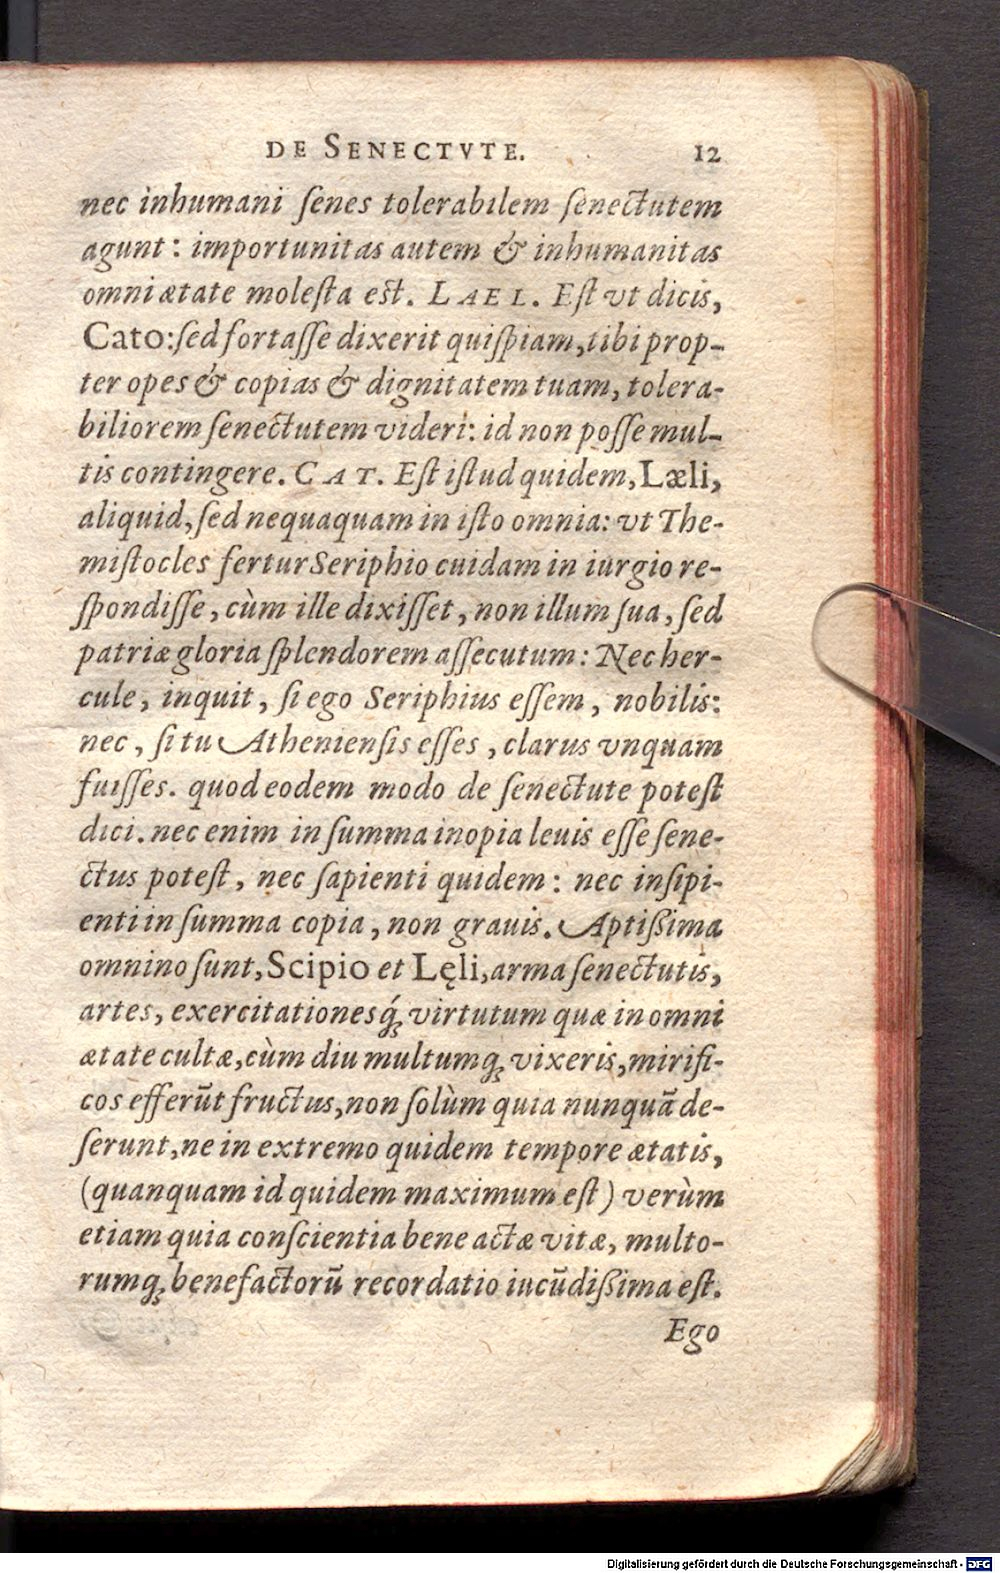 DE SENECTVTE. 12
nec inhumani ſenes tolerabilem ſenectutem
agunt: importunitas autem & inhumanitas
omni ætate moleſta est. LAEL. Eſt vt dicis,
Cato: ſed fortaſſe dixerit quiſpiam, tibi prop-
ter opes & copias & dignitatem tuam, tolera-
biliorem ſenectutem videri: id non poſſe mul-
tis contingere. CAT. Eſt iſtud quidem, Læli,
aliquid, ſed nequaquam in iſto omnia: vt The-
miſtocles fertur Seriphio cuidam in iurgio re-
ſpondiſſe, cùm ille dixiſſet, non illum ſua, ſed
patriæ gloria ſplendorem aſſecutum: Nec her-
cule, inquit, ſi ego Seriphius eſſem, nobilis:
nec, ſi tu Athenienſis eſſes, clarus vnquam
fuiſſes. quod eodem modo de ſenectute poteſt
dici. nec enim in ſumma inopia leuis eſſe ſene-
ctus poteſt, nec ſapienti quidem: nec inſipi-
enti in ſumma copia, non grauis. Aptiſsima
omnino ſunt, Scipio et Lęli, arma ſenectutis,
artes, exercitationesq́; virtutum quæ in omni
ætate cultæ, cùm diu multumq; vixeris, mirifi-
cos efferūt fructus, non ſolùm quia nunquã de-
ſerunt, ne in extremo quidem tempore ætatis,
(quanquam id quidem maximum eſt) verùm
etiam quia conſcientia bene actæ vitæ, multo-
rumq; benefactorū recordatio iucūdiſsima eſt.
Ego
Digitalisierung gefördert durch die Deutsche Forschungsgemeinschaft - DFG